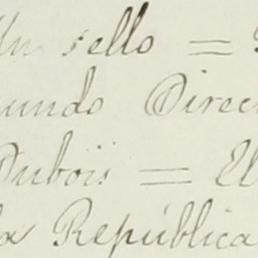 Un sello =
undo Direc
Duboïs = El
la República